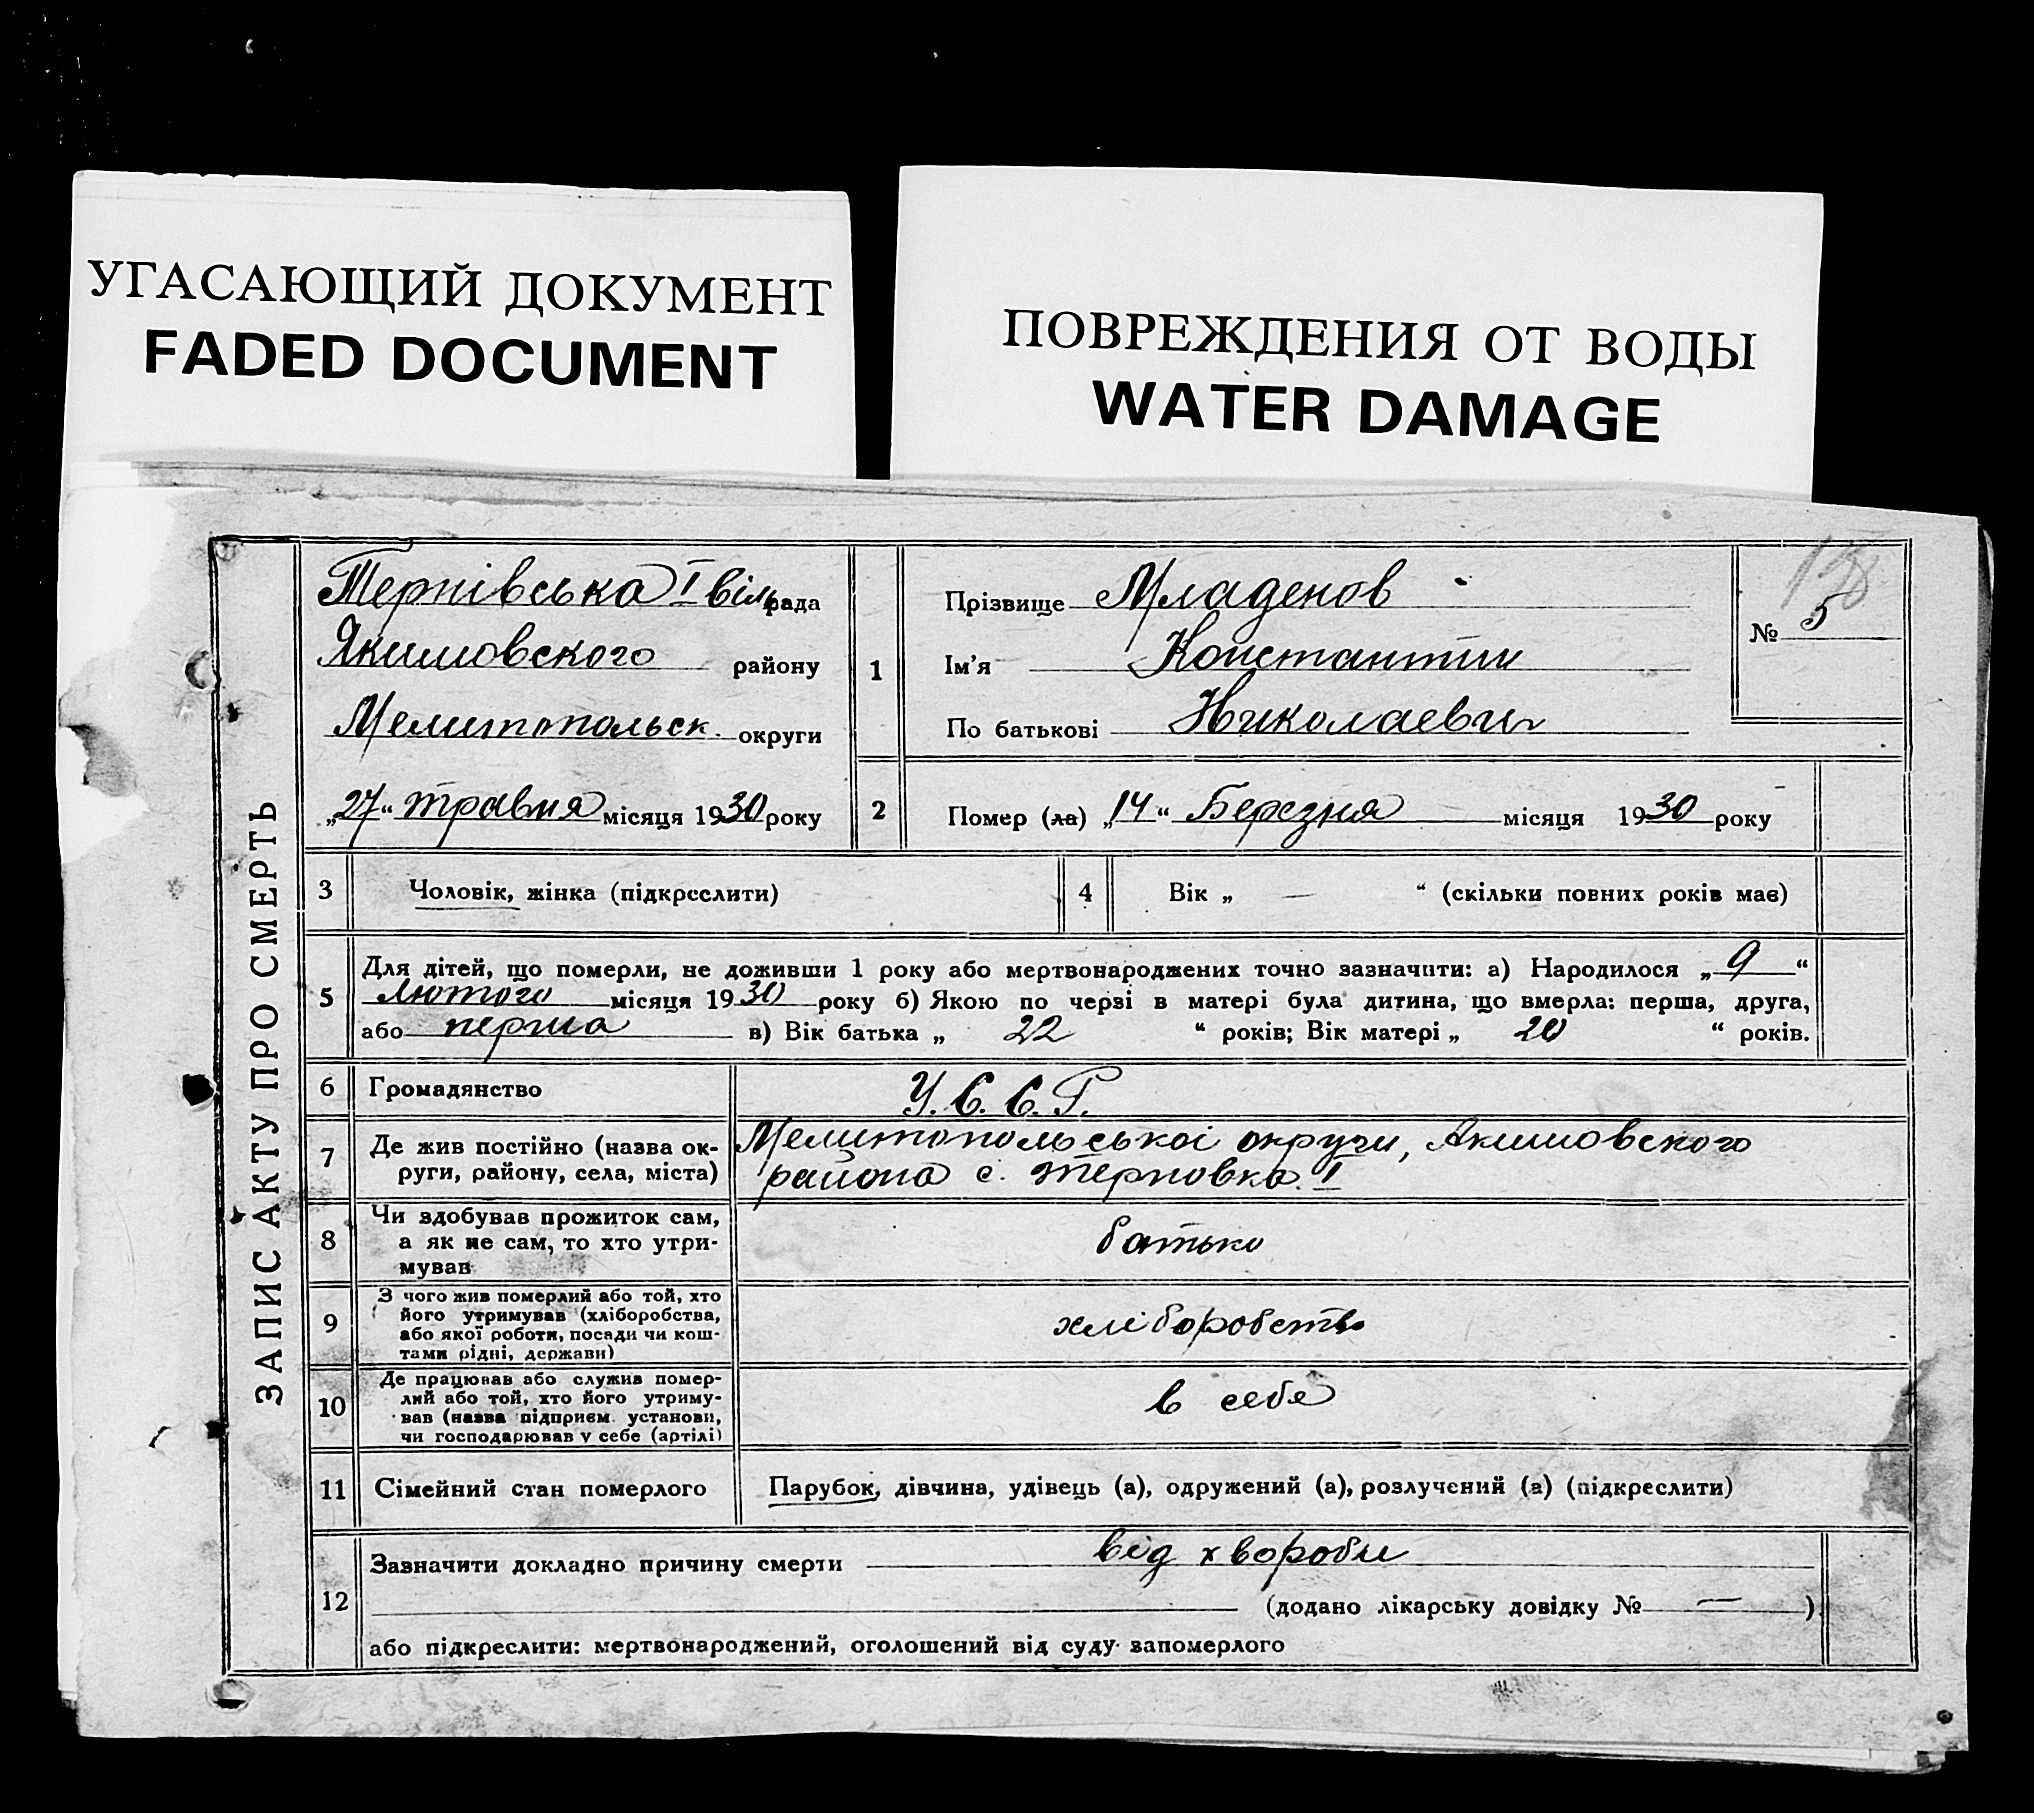 УГАСАЮЩИЙ ДОКУМЕНТ
FADED DOCUMENT
ПОВРЕЖДЕНИЯ ОТ ВОДЫ
WATER DAMAGE
ЗАПИС АКТУ ПРО СМЕРТЬ
Тернівська I вільрада
Якимовского району
Мелитопольск. округи
„27“ травня місяця 1930 року
1
Прізвище Младенов
Ім’я Константин
По батькові Николаевич
138
№ 5
2 Помер (ла) „14“ Березня місяця 1930 року
3 Чоловік, жінка (підкреслити)
4 Вік „ — “ (скільки повних років має)
5 Для дітей, що померли, не доживши 1 року або мертвонароджених точно зазначити: а) Народилося „9“
лютого місяця 1930 року б) Якою по черзі в матері була дитина, що вмерла: перша, друга,
або перша в) Вік батька „ 22 “ років; Вік матері „ 20 “ років.
6 Громадянство У.С.С.Р.
7 Де жив постійно (назва ок-
руги, району, села, міста)
Мелитопольської округи, Якимовского
района с. Терновка I
8 Чи здобував прожиток сам,
а як не сам, то хто утри-
мував
батько
9 З чого жив померлий або той, хто
його утримував (хліборобства,
або якої роботи, посади чи кош-
тами рідні, держави)
хліборобство
10 Де працював або служив помер-
лий або той, хто його утриму-
вав (назва підприєм. установи,
чи господарював у себе (артілі)
в себе
11 Сімейний стан померлого Парубок, дівчина, удівець (а), одружений (а), розлучений (а) (підкреслити)
12 Зазначити докладно причину смерти від хвороби
(додано лікарську довідку № — )
або підкреслити: мертвонароджений, оголошений від суду запомерлого